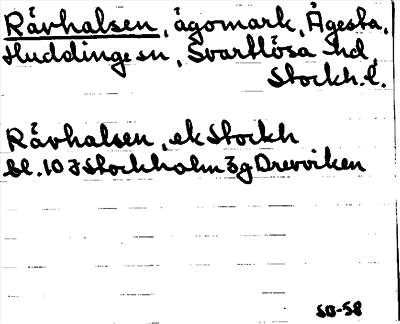 Råvhalsen, ägomark, Ågesta,
Huddinge sn, Svartlösa hd,
Stockh. l.
Råvhalsen, ek Stockh
bl. 10 I Stockholm 3g Drevviken
SB-58